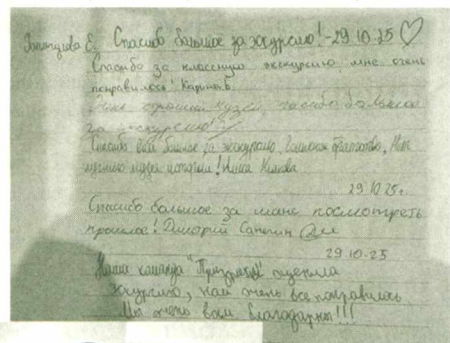 Е. Спасибо большое за экскурсию! - 29.10.25 ♡
Спасибо за классную экскурсию, мне очень
понравилось! Карина Б.
музей спасибо большое
за экскурсию!
Спасибо вам большое за экскурсию,
музею истории!
29.10.25г.
Спасибо большое за шанс посмотреть
прошлое! Дмитрий
29.10.25
Наша команда "Призраки" оценила
экскурсию, нам очень все понравилось
Мы очень вам благодарны!!!